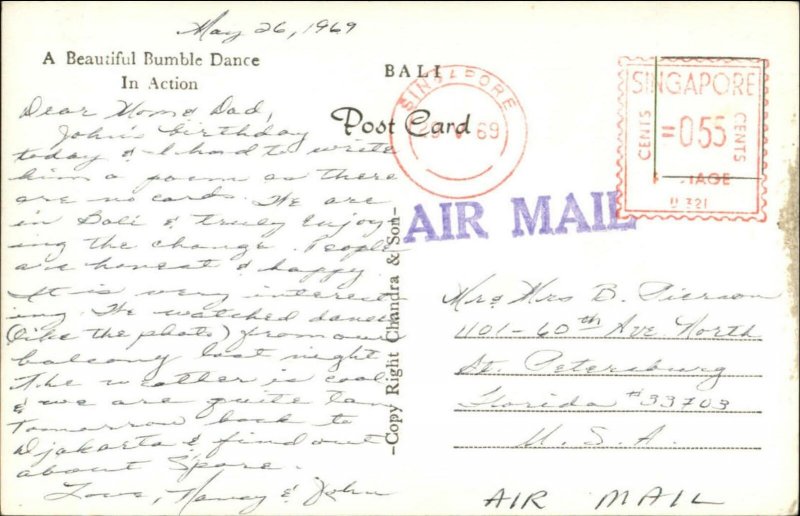 May 26, 1969
A Beautiful Bumble Dance
In Action
Dear Mom & Dad,
John's birthday
today & I had to write
him a poem as there
are no cards. We are
in Bali & truly enjoy-
ing the change. People
are honest & happy.
It is very interest-
ing. We watched dance
(like the photo) from our
balcony last night.
The weather is cool
& we are quite tan
Tomorrow back to
Djakarta & find out
about Spore.
Love, Nancy & John
BALI
Post Card
-Copy Right Chandra & Son-
SINGAPORE
V 69
SINGAPORE
CENTS
=055
CENTS
TAGE
321
AIR MAIL
Mr & Mrs B. Pierson
1101-60th Ave North
St. Petersburg
Florida #33703
U.S.A.
AIR MAIL